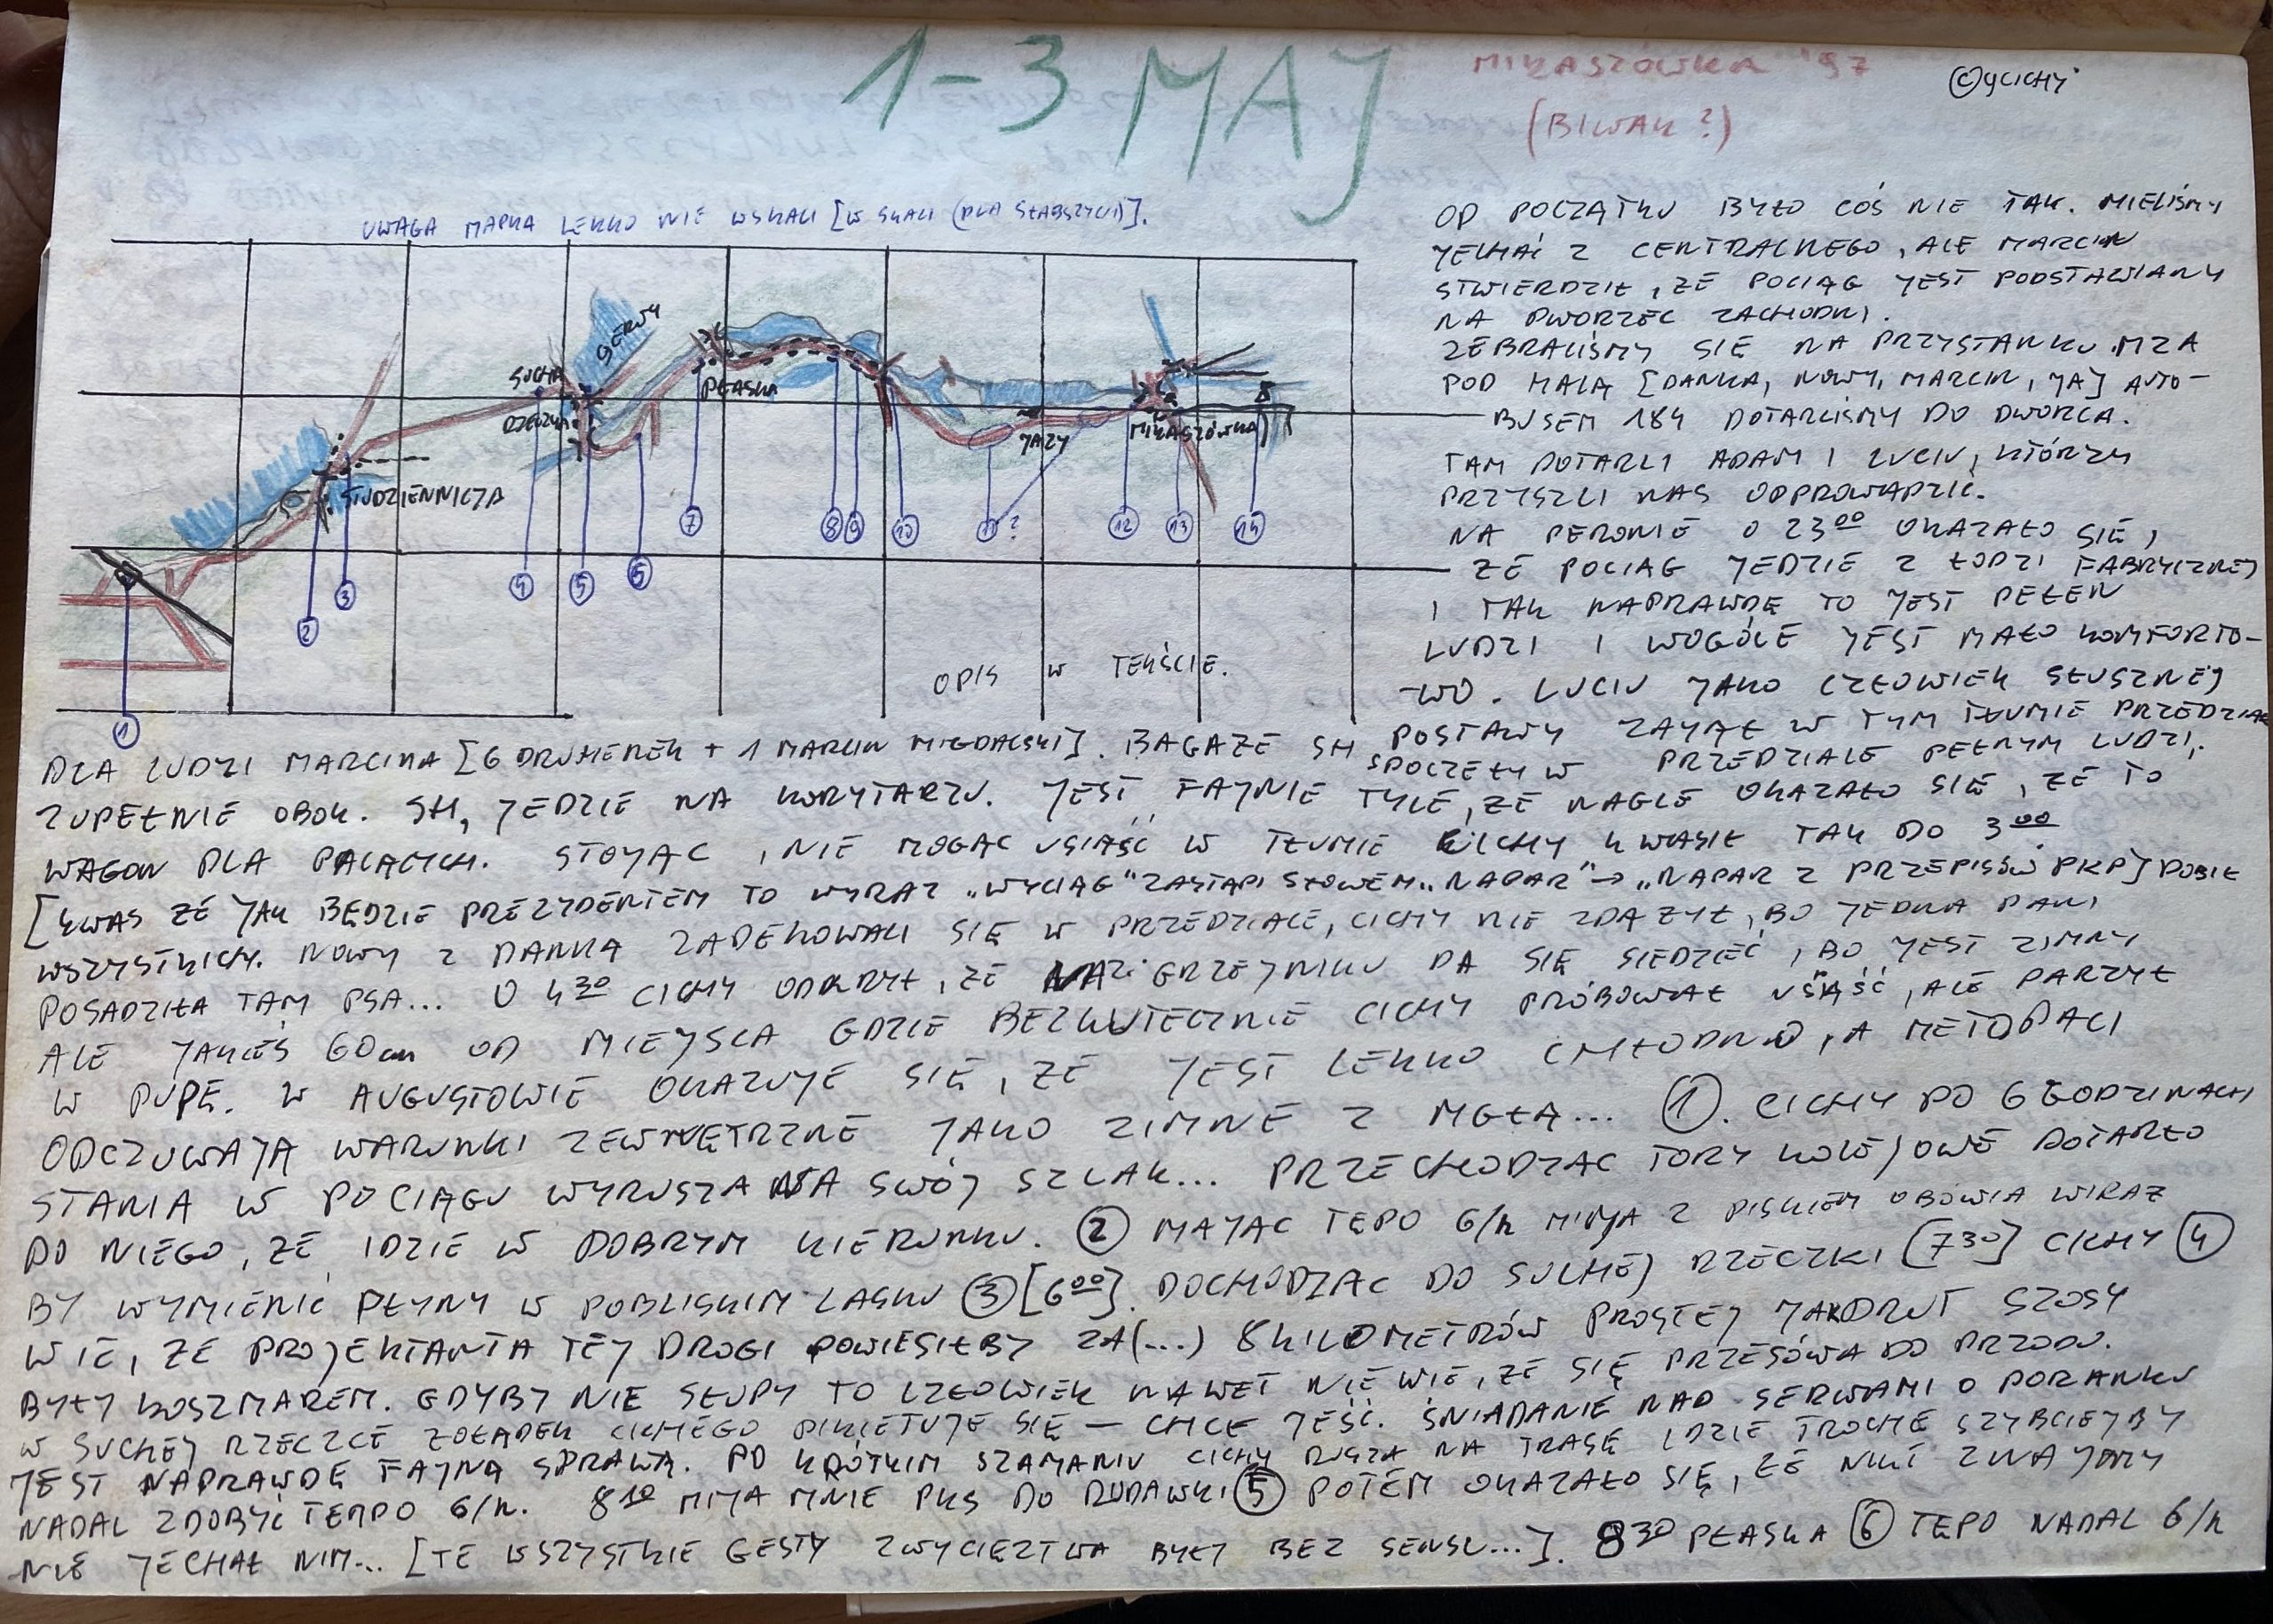 1-3 MAJ
MIKASZÓWKA '97
(BIWAK?)
©YCICHY
UWAGA MAPKA LEKKO NIE WSKALI [W SKALI (DLA SŁABSZYCH)].
SERWY
SUCHA
RZECZKA
PŁASKA
STUDZIENNICZA
JAZY
MIKASZÓWKA
1
2
3
4
5
6
7
8
9
10
11?
12
13
14
OPIS W TEKŚCIE.
OD POCZĄTKU BYŁO COŚ NIE TAK. MIELIŚMY
JECHAĆ Z CENTRALNEGO, ALE MARCIN
STWIERDZIŁ, ŻE POCIĄG JEST PODSTAWIANY
NA DWORZEC ZACHODNI.
ZEBRALIŚMY SIĘ NA PRZYSTANKU MZA
POD HALĄ [DANKA, NOWY, MARCIN, JA] AUTO-
BUSEM 184 DOTARLIŚMY DO DWORCA.
TAM DOTARLI ADAM I LUCIU, KTÓRZY
PRZYSZLI NAS ODPROWADZIĆ.
NA PERONIE O 23⁰⁰ OKAZAŁO SIĘ,
ŻE POCIĄG JEDZIE Z ŁODZI FABRYCZNEJ
I TAK NAPRAWDĘ TO JEST PEŁEN
LUDZI I WOGÓLE JEST MAŁO KOMFORTO-
-WO. LUCIU JAKO CZŁOWIEK SŁUSZNEJ
POSTAWY ZAJĄŁ W TYM TŁUMIE PRZEDZIAŁ
DLA LUDZI MARCINA [6 DRUHENEK + 1 MARCIN MIGDALSKI]. BAGAŻE SH SPOCZĘŁY W PRZEDZIALE PEŁNYM LUDZI,
ZUPEŁNIE OBOK. SH, JEDZIE NA KORYTARZU. JEST FAJNIE TYLE, ŻE NAGLE OKAZAŁO SIĘ, ŻE TO
WAGON DLA PALĄCYCH. STOJĄC, NIE MOGĄC USIĄŚĆ W TŁUMIE CICHY KWASIŁ TAK DO 3⁰⁰
[KWAS ŻE JAK BĘDZIE PREZYDENTEM TO WYRAZ „WYCIĄG" ZASTĄPI SŁOWEM „NAPAR" → „NAPAR Z PRZEPISÓW PKP] DOBIŁ
WSZYSTKICH. NOWY Z DANKĄ ZADEKOWALI SIĘ W PRZEDZIALE, CICHY NIE ZDĄŻYŁ, BO JEDNA PANI
POSADZIŁA TAM PSA... O 4³⁰ CICHY ODKRYŁ, ŻE NA GRZEJNIKU DA SIĘ SIEDZIEĆ, BO JEST ZIMNY
ALE JAKIEŚ 60cm OD MIEJSCA GDZIE BEZKUTECZNIE CICHY PRÓBOWAŁ USIĄŚĆ, ALE PARZYŁ
W PUPĘ. W AUGUSTOWIE OKAZUJE SIĘ, ŻE JEST LEKKO CHŁODNO, A METOPACI
ODCZUWAJĄ WARUNKI ZEWNĘTRZNE JAKO ZIMNE Z MGŁĄ... ①. CICHY PO 6 GODZINACH
STANIA W POCIĄGU WYRUSZA NA SWÓJ SZLAK... PRZECHODZĄC TORY KOLEJOWE DOTARŁO
DO NIEGO, ŻE IDZIE W DOBRYM KIERUNKU. ② MAJĄC TEPO 6/h MIJA Z PISKIEM OBÓWIA WIRAŻ
BY WYMIENIĆ PŁYNY W POBLISKIM LASKU ③ [6⁰⁰]. DOCHODZĄC DO SUCHEJ RZECZKI [7³⁰] CICHY ④
WIE, ŻE PROJEKTANTA TEJ DROGI POWIESIŁBY ZA (...) 8 KILOMETRÓW PROSTEJ JAKDRUT SZOSY
BYŁY KOSZMAREM. GDYBY NIE SŁUPY TO CZŁOWIEK NAWET NIE WIE, ŻE SIĘ PRZESÓWA DO PRZODU.
W SUCHEJ RZECZCE ŻOŁĄDEK CICHEGO PIKIETUJE SIĘ — CHCE JEŚĆ. ŚNIADANIE NAD SERWAMI O PORANKU
JEST NAPRAWDĘ FAJNĄ SPRAWĄ. PO KRÓTKIM SZAMANIU CICHY RUSZA NA TRASĘ IDZIE TROCHĘ SZYBCIEJ BY
NADAL ZDOBYĆ TEMPO 6/h. 8¹⁰ MIJA MNIE PKS DO RUDAWKI ⑤ POTEM OKAZAŁO SIĘ, ŻE NIKT ZNAJOMY
NIE JECHAŁ NIM... [TE WSZYSTKIE GESTY ZWYCIĘZTWA BYŁY BEZ SENSU...]. 8³⁰ PŁASKA ⑥ TĘPO NADAL 6/h